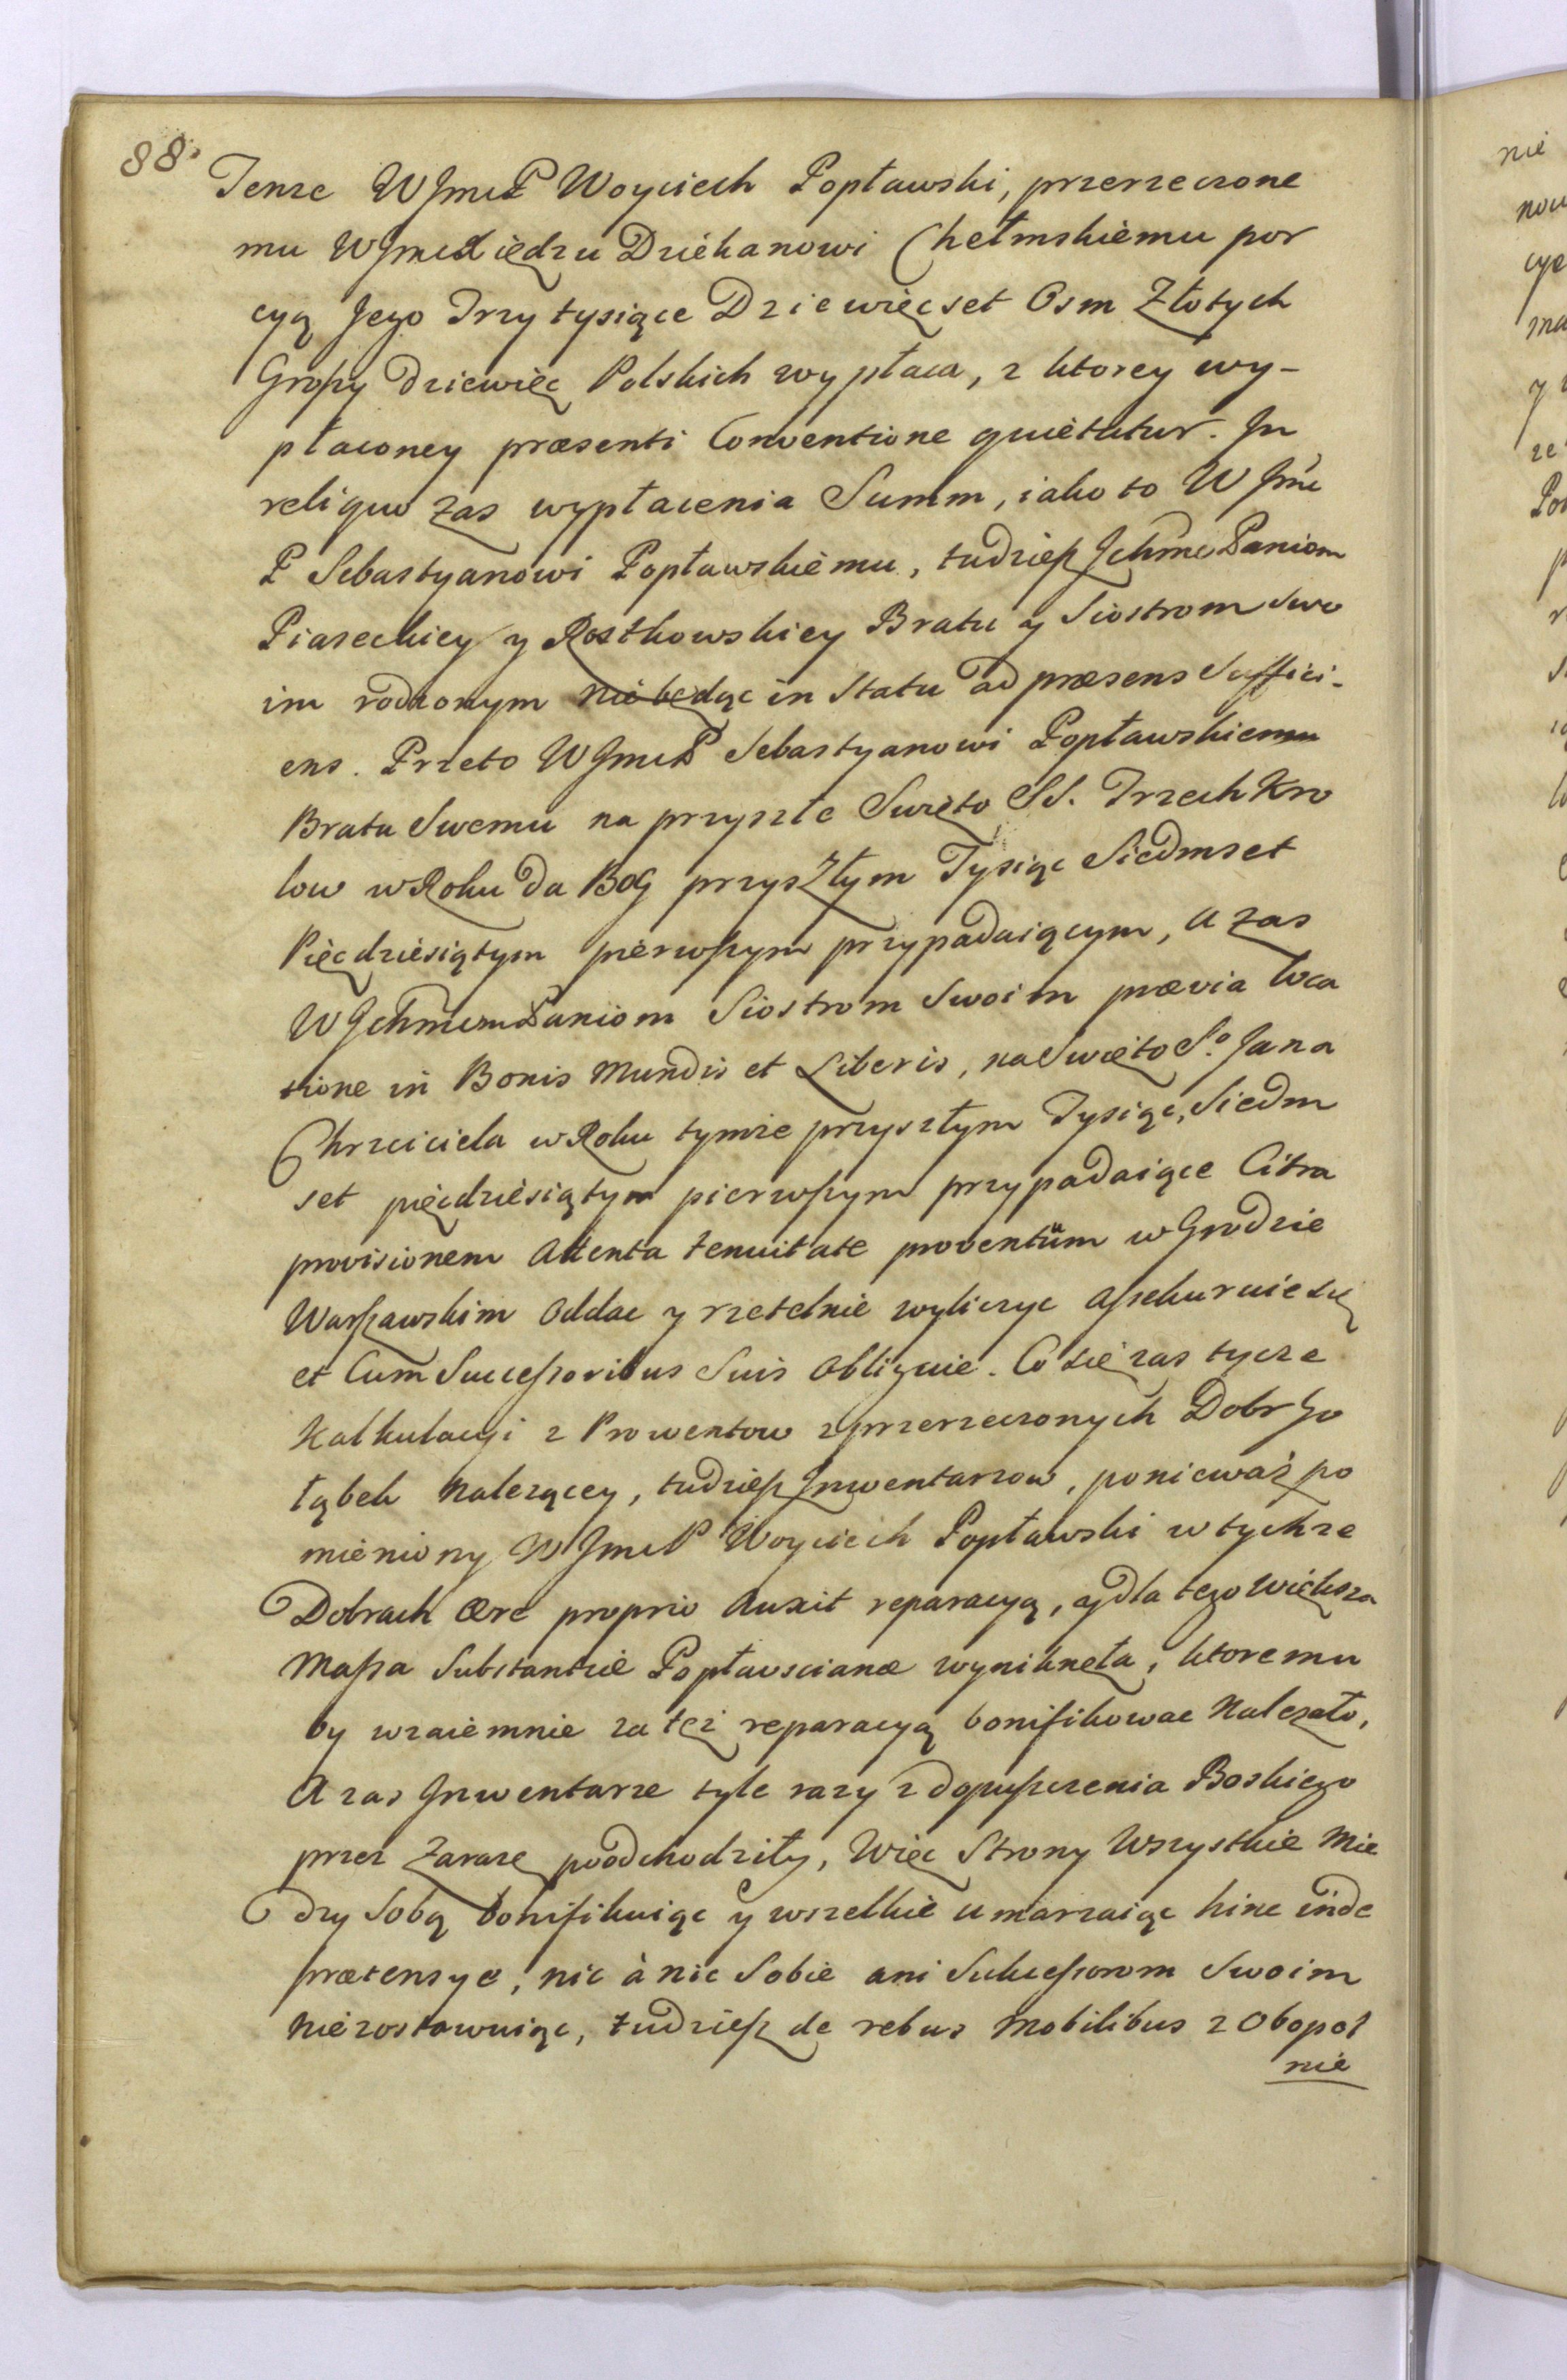 88
Tenze WJmcP Woyciech Popławski, przerzeczone
mu WJmcXiędzu Dziekanowi Chełmskiemu por
cyą Jego Trzy tysiące Dziewięcset Osm Złotych
Groszy dziewięc Polskich wypłaca, z ktorey wy-
płaconey præsenti Conventione quietatur. In
reliquo zas wypłacenia Summ, iako to W Jmc
P Sebastyanowi Popławskiemu, tudziesz Jchmc Paniom
Piaseckiey y Rostkowskiey Bratu y Siostrom swo
im rodzonym nie będąc in Statu ad præsens suffici-
ens. Przeto WJmcP Sebastyanowi Popławskiemu
Bratu Swemu na przyszłe Swięto SS. Trzech Kro
low w Roku da BoG przyszłym Tysiąc Siedmset
Pięcdziesiątym pierwszym przypadaiącym, a zas
WJchmcm Paniom Siostrom Swoim prævia loca
tione in Bonis Mundis et Liberis, na Swięto S.º Jana
Chrzciciela w Roku tymze przyszłym Tysiąc, Siedm
set pięcdziesiątym pierwszym przypadaiące Citra
provisionem Attenta tenuitate proventûm w Grodzie
Warszawskim Oddac y rzetelnie wyliczyc assekuruie się
et Cum Successoribus Suis Obliguie. Co się zas tycze
Kalkulacyi z Prowentow z przerzeczonych Dobr Go
łąbek Nalezącey, tudziesz Jnwentarzow, poniewaź po
mieniony WJmcP Woyciech Popławski w tychze
Dobrach ære proprio Auxit reparacyą, y dla tego większa
Massa Substantiæ Popławscianæ wynikneła, ktoremu
by wzaiemnie za tęż reparacyą bonifikowac Nalezało,
A zas Jnwentarze tyle razy z dopuszczenia Boskiego
przez Zarazę poodchodziły, Więc Strony Wszystkie Mie
dzy Sobą bonifikuiąc y wszelkie umarzaiąc hinc inde
prætensye, nic à nic Sobie ani Sukcessorom Swoim
Niezostawuiąc, tudziesz de rebus Mobilibus z Obopol
nie